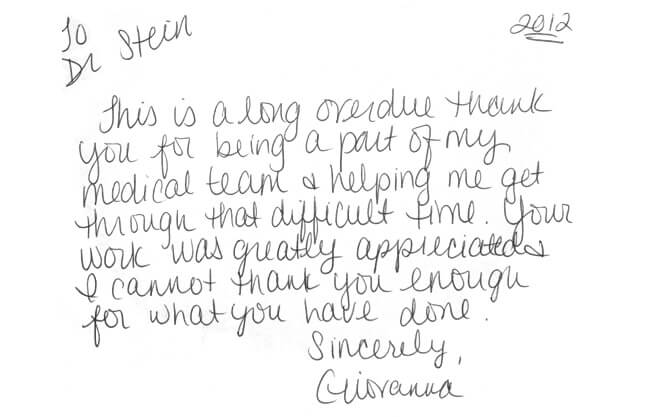 To
Dr Stein
2012
This is a long overdue thank
you for being a part of my
medical team & helping me get
through that difficult time. Your
work was greatly appreciated &
I cannot thank you enough
for what you have done.
Sincerely,
Giovanna